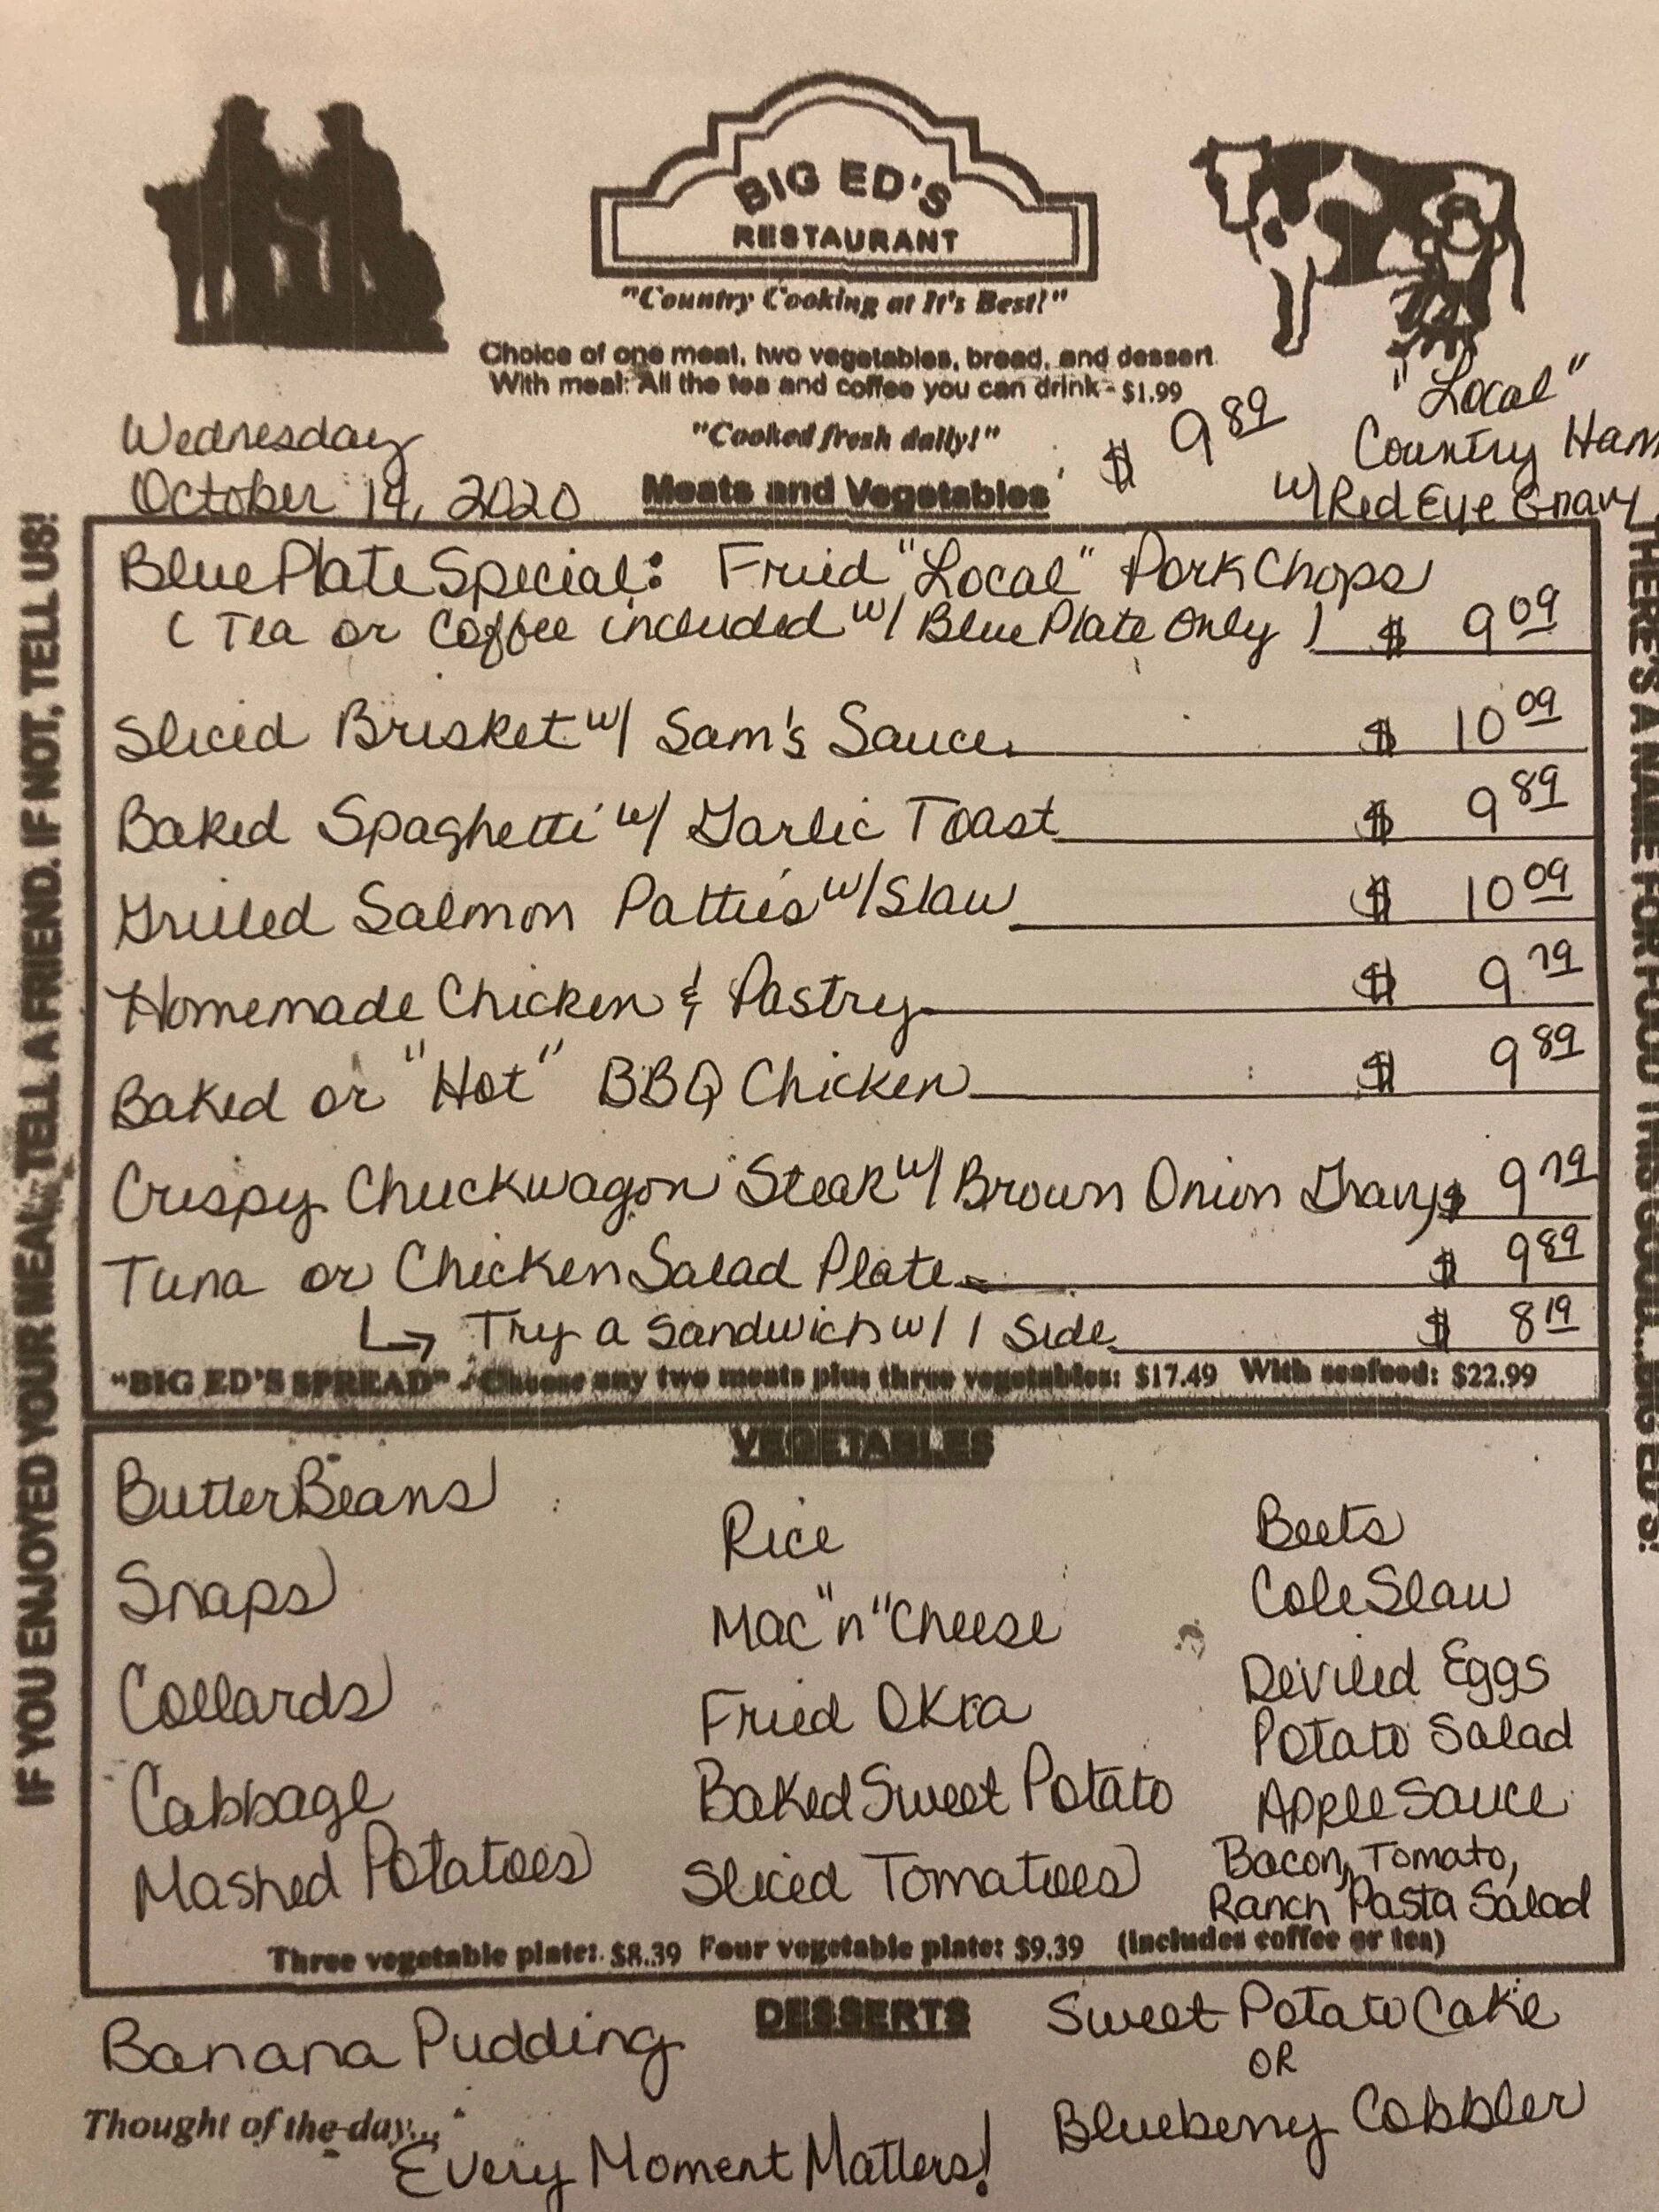 BIG ED'S
RESTAURANT
"Country Cooking at It's Best!"
Choice of one meat, two vegetables, bread, and dessert
With meal: All the tea and coffee you can drink - $1.99
"Cooked fresh daily!"
Wednesday
October 14, 2020
Meats and Vegetables
$ 9 89
"Local"
Country Ham
w/ Red Eye Gravy
Blue Plate Special: Fried "Local" Pork Chops
(Tea or Coffee included w/ Blue Plate Only) $ 9 09
Sliced Brisket w/ Sam's Sauce $ 10 09
Baked Spaghetti w/ Garlic Toast $ 9 89
Grilled Salmon Patties w/ Slaw $ 10 09
Homemade Chicken & Pastry $ 9 79
Baked or "Hot" BBQ Chicken $ 9 89
Crispy Chuckwagon Steak w/ Brown Onion Gravy $ 9 79
Tuna or Chicken Salad Plate $ 9 89
Try a Sandwich w/ 1 Side $ 8 19
"BIG ED'S SPREAD" - Choose any two meats plus three vegetables: $17.49 With seafood: $22.99
VEGETABLES
Butter Beans
Snaps
Collards
Cabbage
Mashed Potatoes
Rice
Mac "n" Cheese
Fried Okra
Baked Sweet Potato
Sliced Tomatoes
Beets
Cole Slaw
Deviled Eggs
Potato Salad
Apple Sauce
Bacon, Tomato,
Ranch Pasta Salad
Three vegetable plate: $8.39 Four vegetable plate: $9.39 (Includes coffee or tea)
DESSERTS
Banana Pudding
Sweet Potato Cake
OR
Blueberry Cobbler
Thought of the day...
Every Moment Matters!
IF YOU ENJOYED YOUR MEAL, TELL A FRIEND. IF NOT, TELL US!
THERE'S A NAME FOR FOOD THIS GOOD...BIG ED'S!